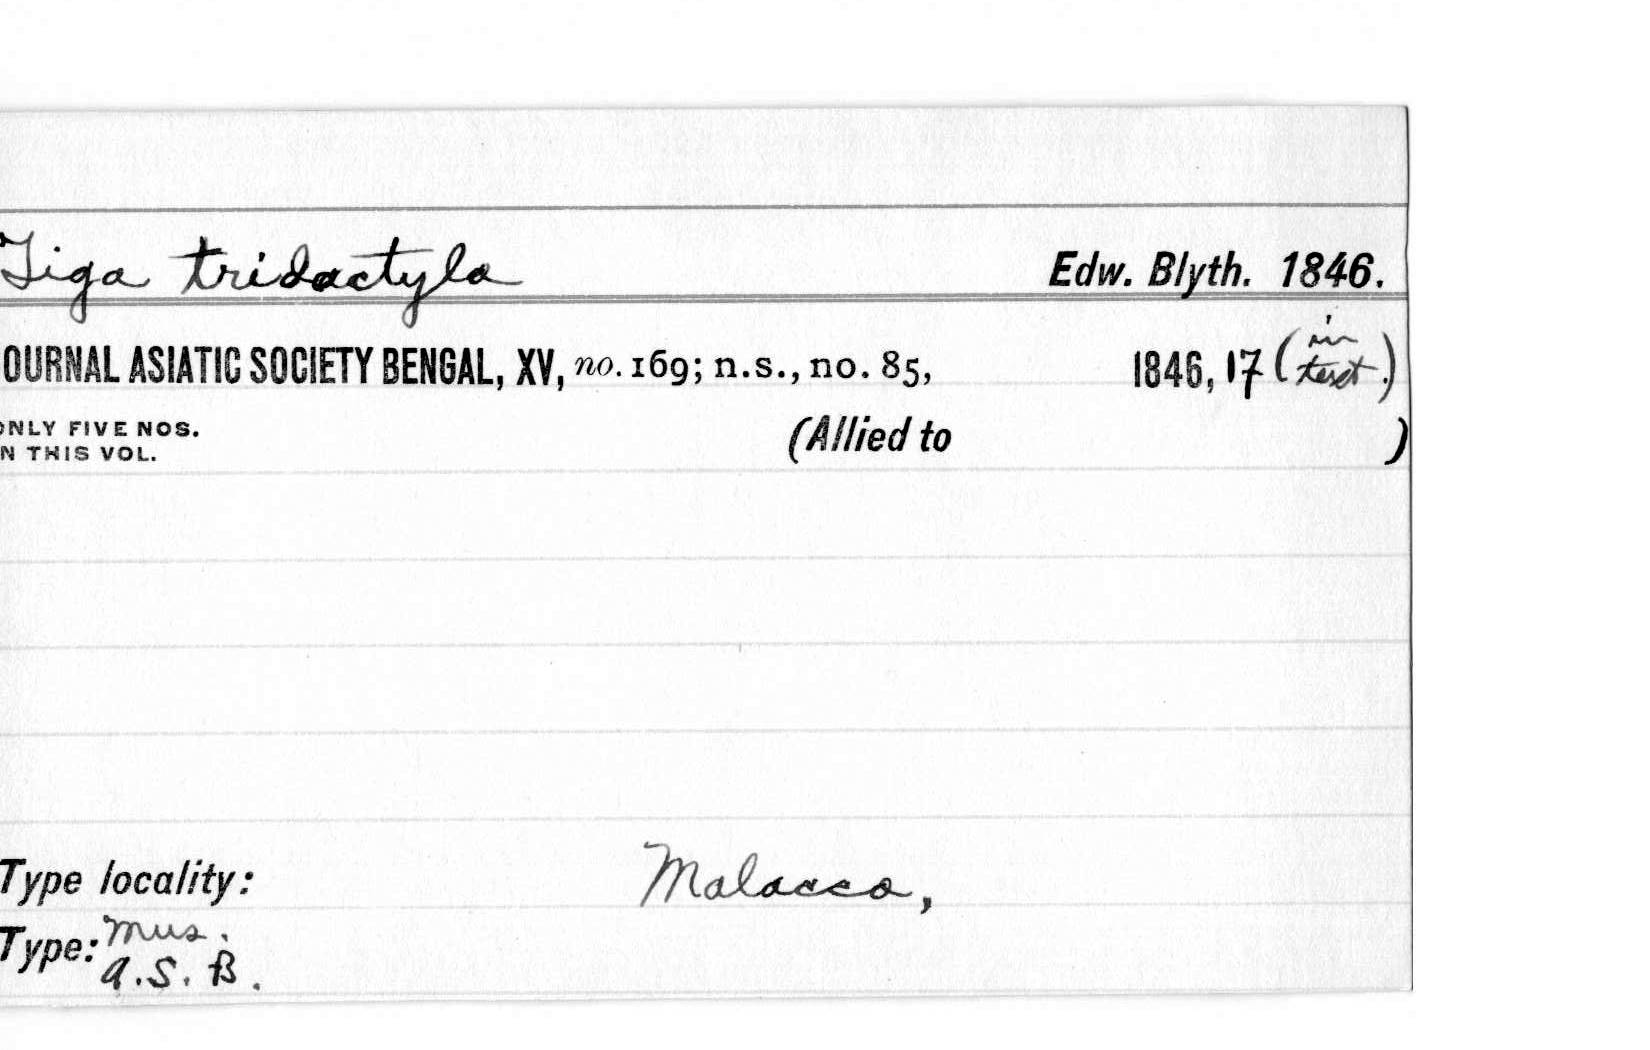 Tiga tridactyla Edw. Blyth. 1846.
OURNAL ASIATIC SOCIETY BENGAL, XV, no. 169; n.s., no. 85, 1846, 17 (in text.)
ONLY FIVE NOS. (Allied to )
N THIS VOL.
Type locality: Malacca,
Type: Mus.
A.S.B.